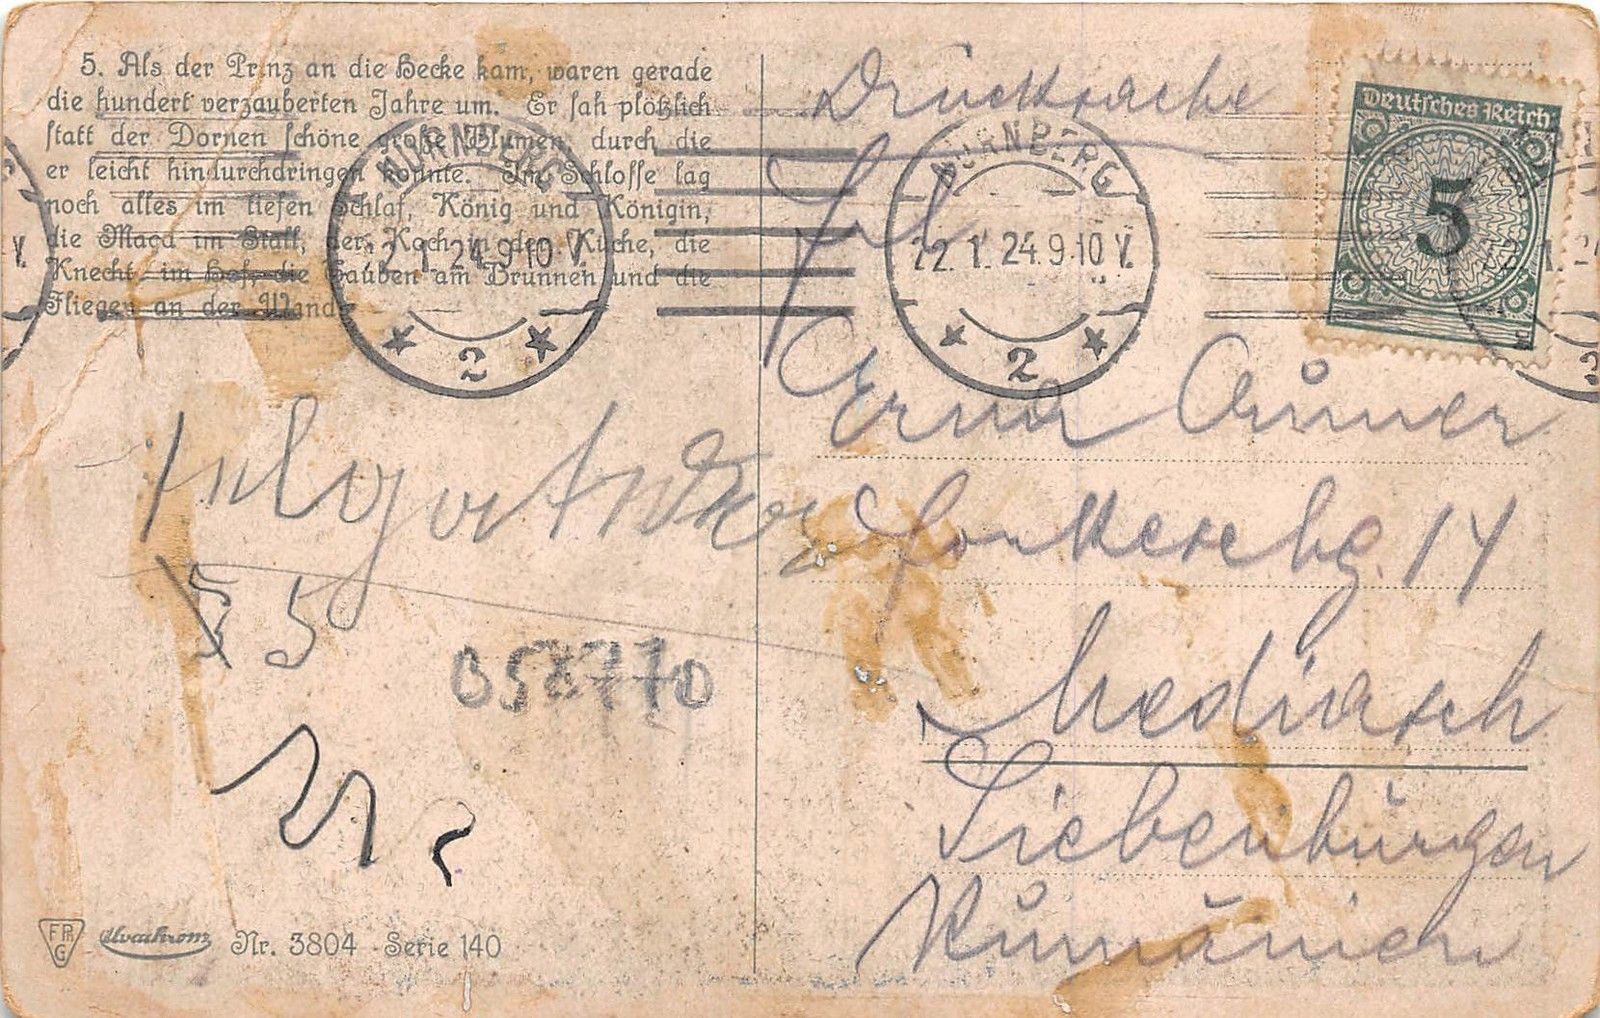 5. Als der Prinz an die Hecke kam, waren gerade
die hundert verzauberten Jahre um. Er sah plötzlich
statt der Dornen schöne große Blumen, durch die
er leicht hindurchdringen konnte. Im Schlosse lag
noch alles im tiefen Schlaf, König und Königin,
die Magd im Stall, der Koch in der Küche, die
Knecht im Hof, die Tauben am Brunnen und die
Fliegen an der Wand.
Drucksache
Deutsches Reich
5
NÜRNBERG
22.1.24.9-10 V.
2
NÜRNBERG
22.1.24.9-10 V.
2
Frl.
Erna
14
Mediasch
Siebenbürgen
Rumänien
5 5
058770
FPG
Uvachrom Nr. 3804 Serie 140